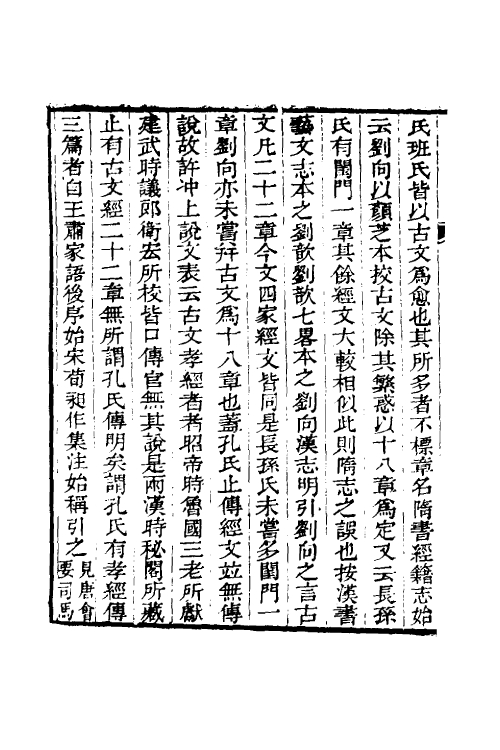 氏班氏皆以古文爲愈也其所多者不標章名隋書經籍志始
云劉向以顏芝本校古文除其繁惑以十八章爲定又云長孫
氏有閨門一章其餘經文大較相似此則隋志之誤也按漢書
藝文志本之劉歆劉歆七畧本之劉向漢志明引劉向之言古
文凡二十二章今文四家經文皆同是長孫氏未嘗多閨門一
章劉向亦未嘗辩古文爲十八章也蓋孔氏止傳經文並無傳
說故許冲上說文表云古文孝經者者昭帝時魯國三老所獻
建武時議郎衛宏所校皆口傳官無其說是兩漢時秘閣所藏
止有古文經二十二章無所謂孔氏傳明矣謂孔氏有孝經傳
三篇者自王肅家語後序始宋荀昶作集注始稱引之
見唐會
要司馬